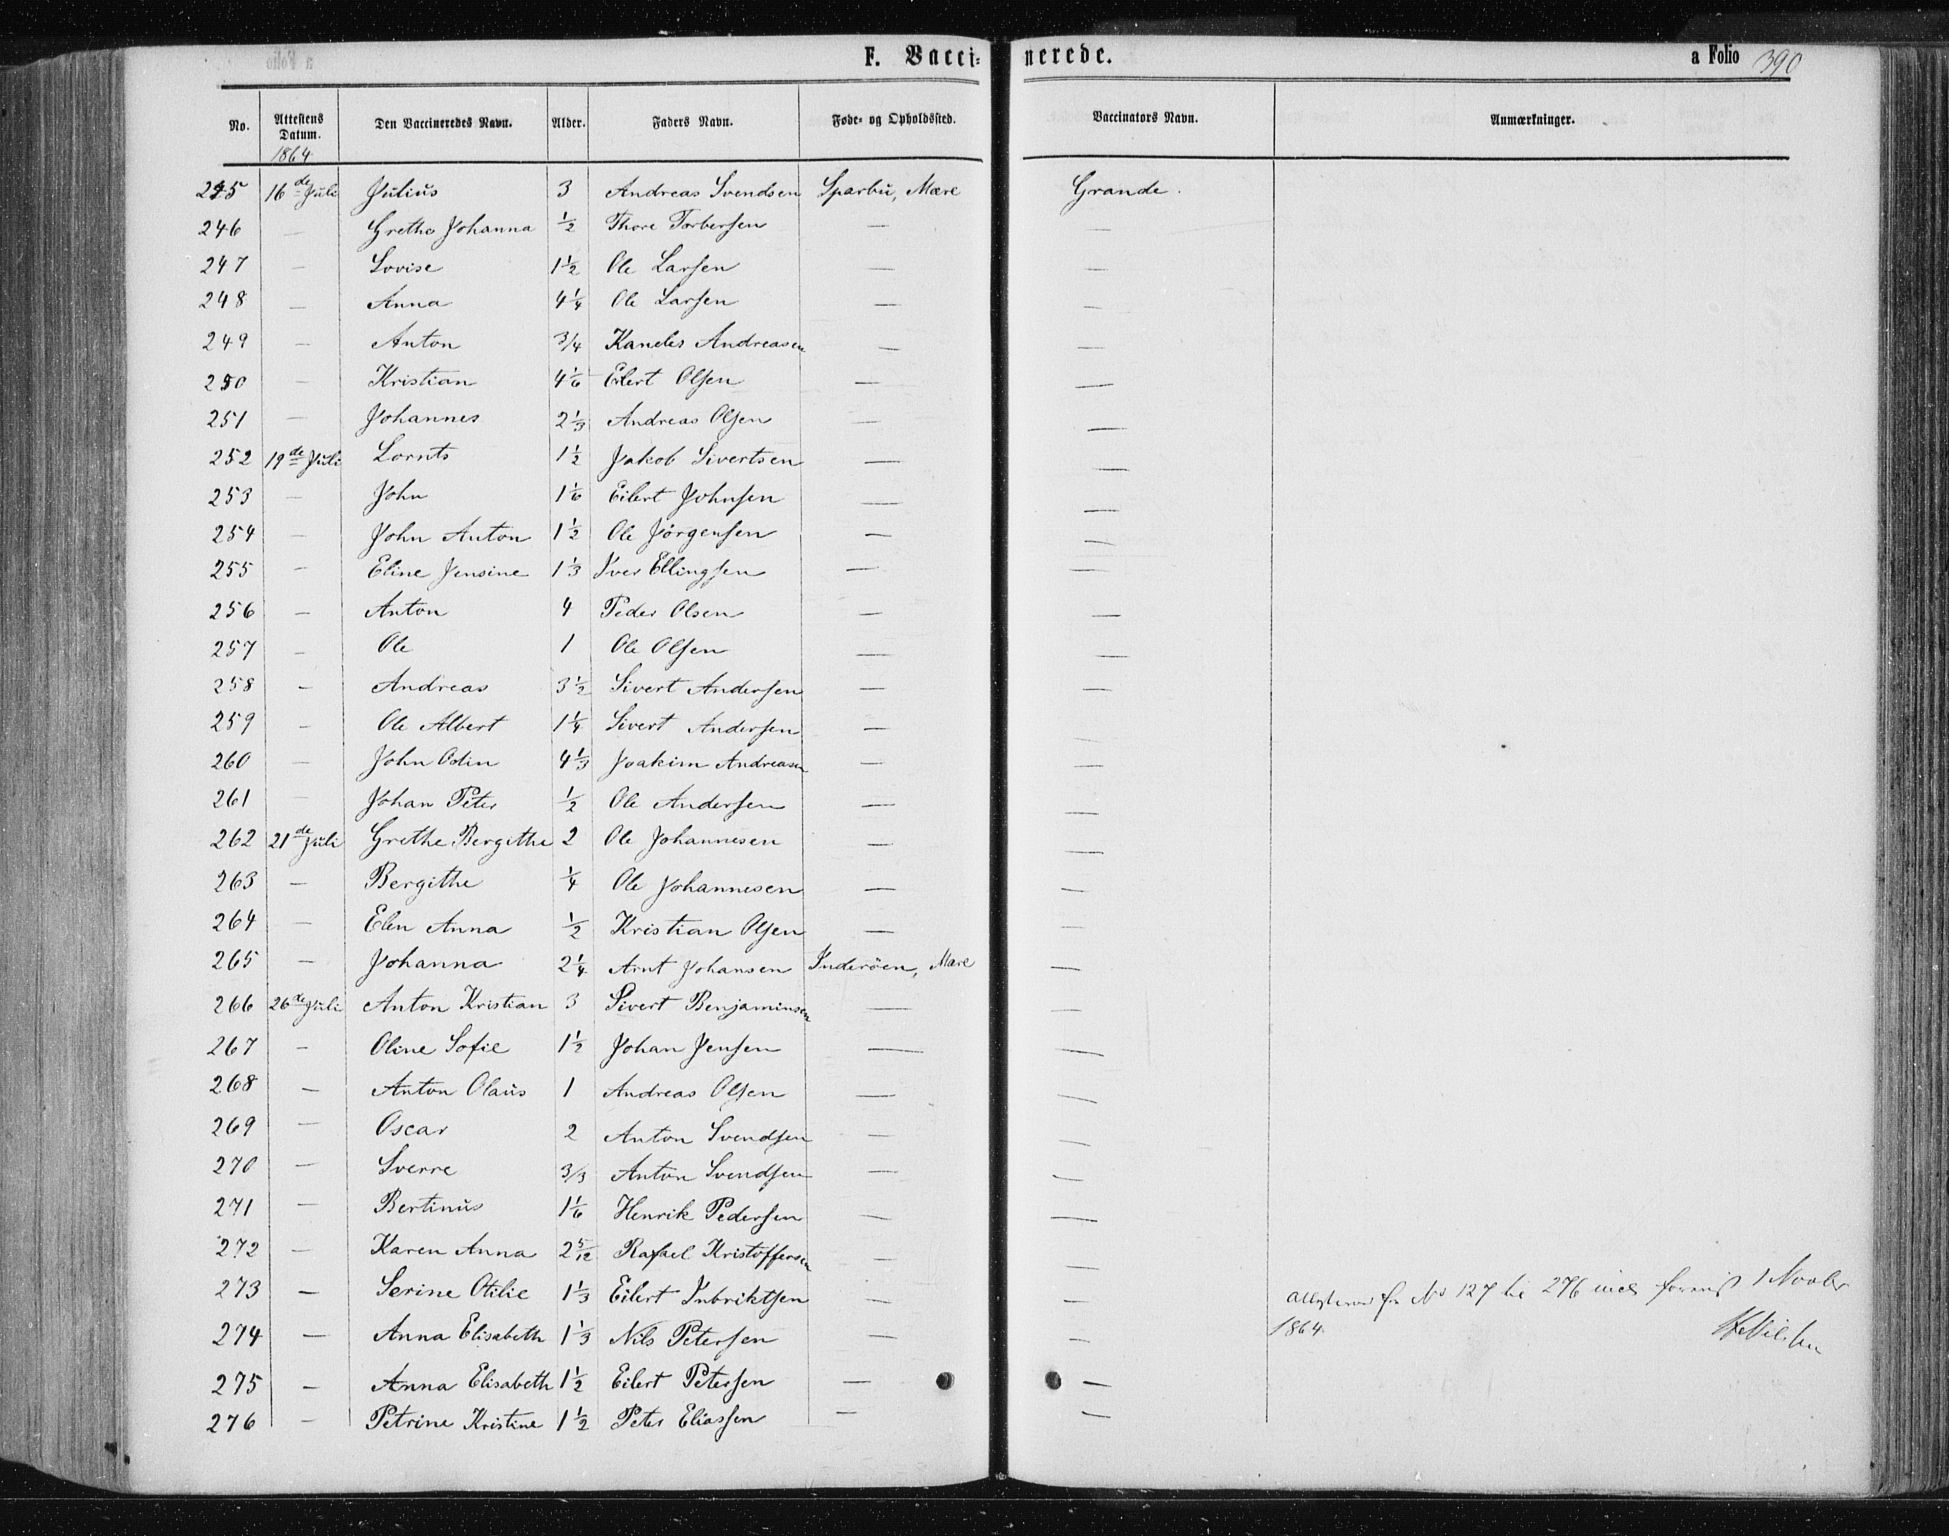 F. Vaccinerede. a Folio 390
No. Attestens Datum. Den Vaccineredes Navn. Alder. Faders Navn. Føde- og Opholdssted. Vaccinators Navn. Anmærkninger.
1864
245 16de Juli Julius 3 Andreas Svendsen Sparbu, Mære Grande.
246 — Grethe Johanna ½ Thore Torbersen — —
247 — Lovise 1½ Ole Larsen — —
248 — Anna 4¼ Ole Larsen — —
249 — Anton 3/4 Kaneles Andreasen — —
250 — Kristian 4 1/6 Eilert Olsen — —
251 — Johannes 2 1/3 Andreas Olsen — —
252 19de Juli Lornts 1½ Jakob Sivertsen — —
253 — John 1 1/6 Eilert Johnsen — —
254 — John Anton 1½ Ole Jørgensen — —
255 — Eline Jensine 1 1/3 Iver Ellingsen — —
256 — Anton 4 Peder Olsen — —
257 — Ole 1 Ole Olsen — —
258 — Andreas 3½ Sivert Andersen — —
259 — Ole Albert 1¼ Sivert Andersen — —
260 — John Odin 4 1/3 Joakim Andreasen — —
261 — Johan Peter ½ Ole Andersen — —
262 21de Juli Grethe Bergithe 2 Ole Johannesen — —
263 — Bergithe ¼ Ole Johannesen — —
264 — Elen Anna ½ Kristian Olsen — —
265 — Johanna 2¼ Arnt Johansen Inderøen, Mære —
266 26de Juli Anton Kristian 3 Sivert Benjaminsen — —
267 — Oline Sofie 1½ Johan Jensen — —
268 — Anton Olaus 1 Andreas Olsen — —
269 — Oscar 2 Anton Svendsen — —
270 — Sverre 3/3 Anton Svendsen — —
271 — Bertinus 1 1/6 Henrik Pedersen — —
272 — Karen Anna 2 5/12 Rafael Kristoffersen — —
273 — Serine Otilie 1 1/3 Eilert Inbriktsen — —
274 — Anna Elisabeth 1 1/3 Nils Petersen —
275 — Anna Elisabeth 1½ Eilert Petersen — —
276 — Petrine Kristine 1½ Peter Eliassen — —
No 127 til 276 incl. 1 Novbr
1864.